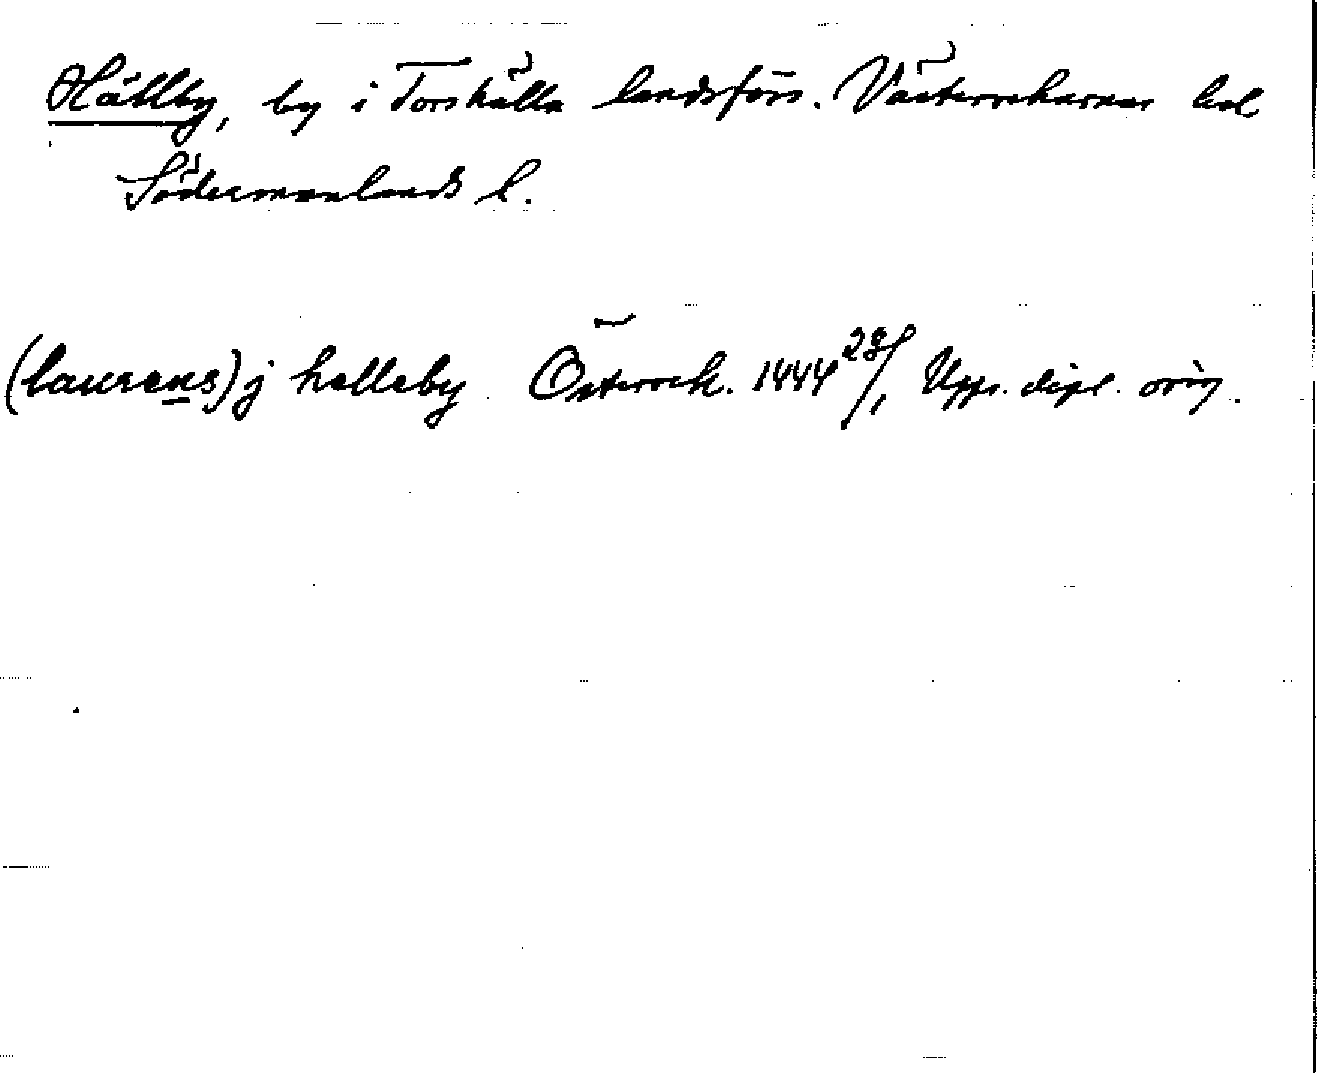 Hällby, by i Torshälla landsförs. Västerrekarnes hd
Södermanlands l.
(laurens) j helleby Österrek. 1444 28/1 Upps. dipl. orig.